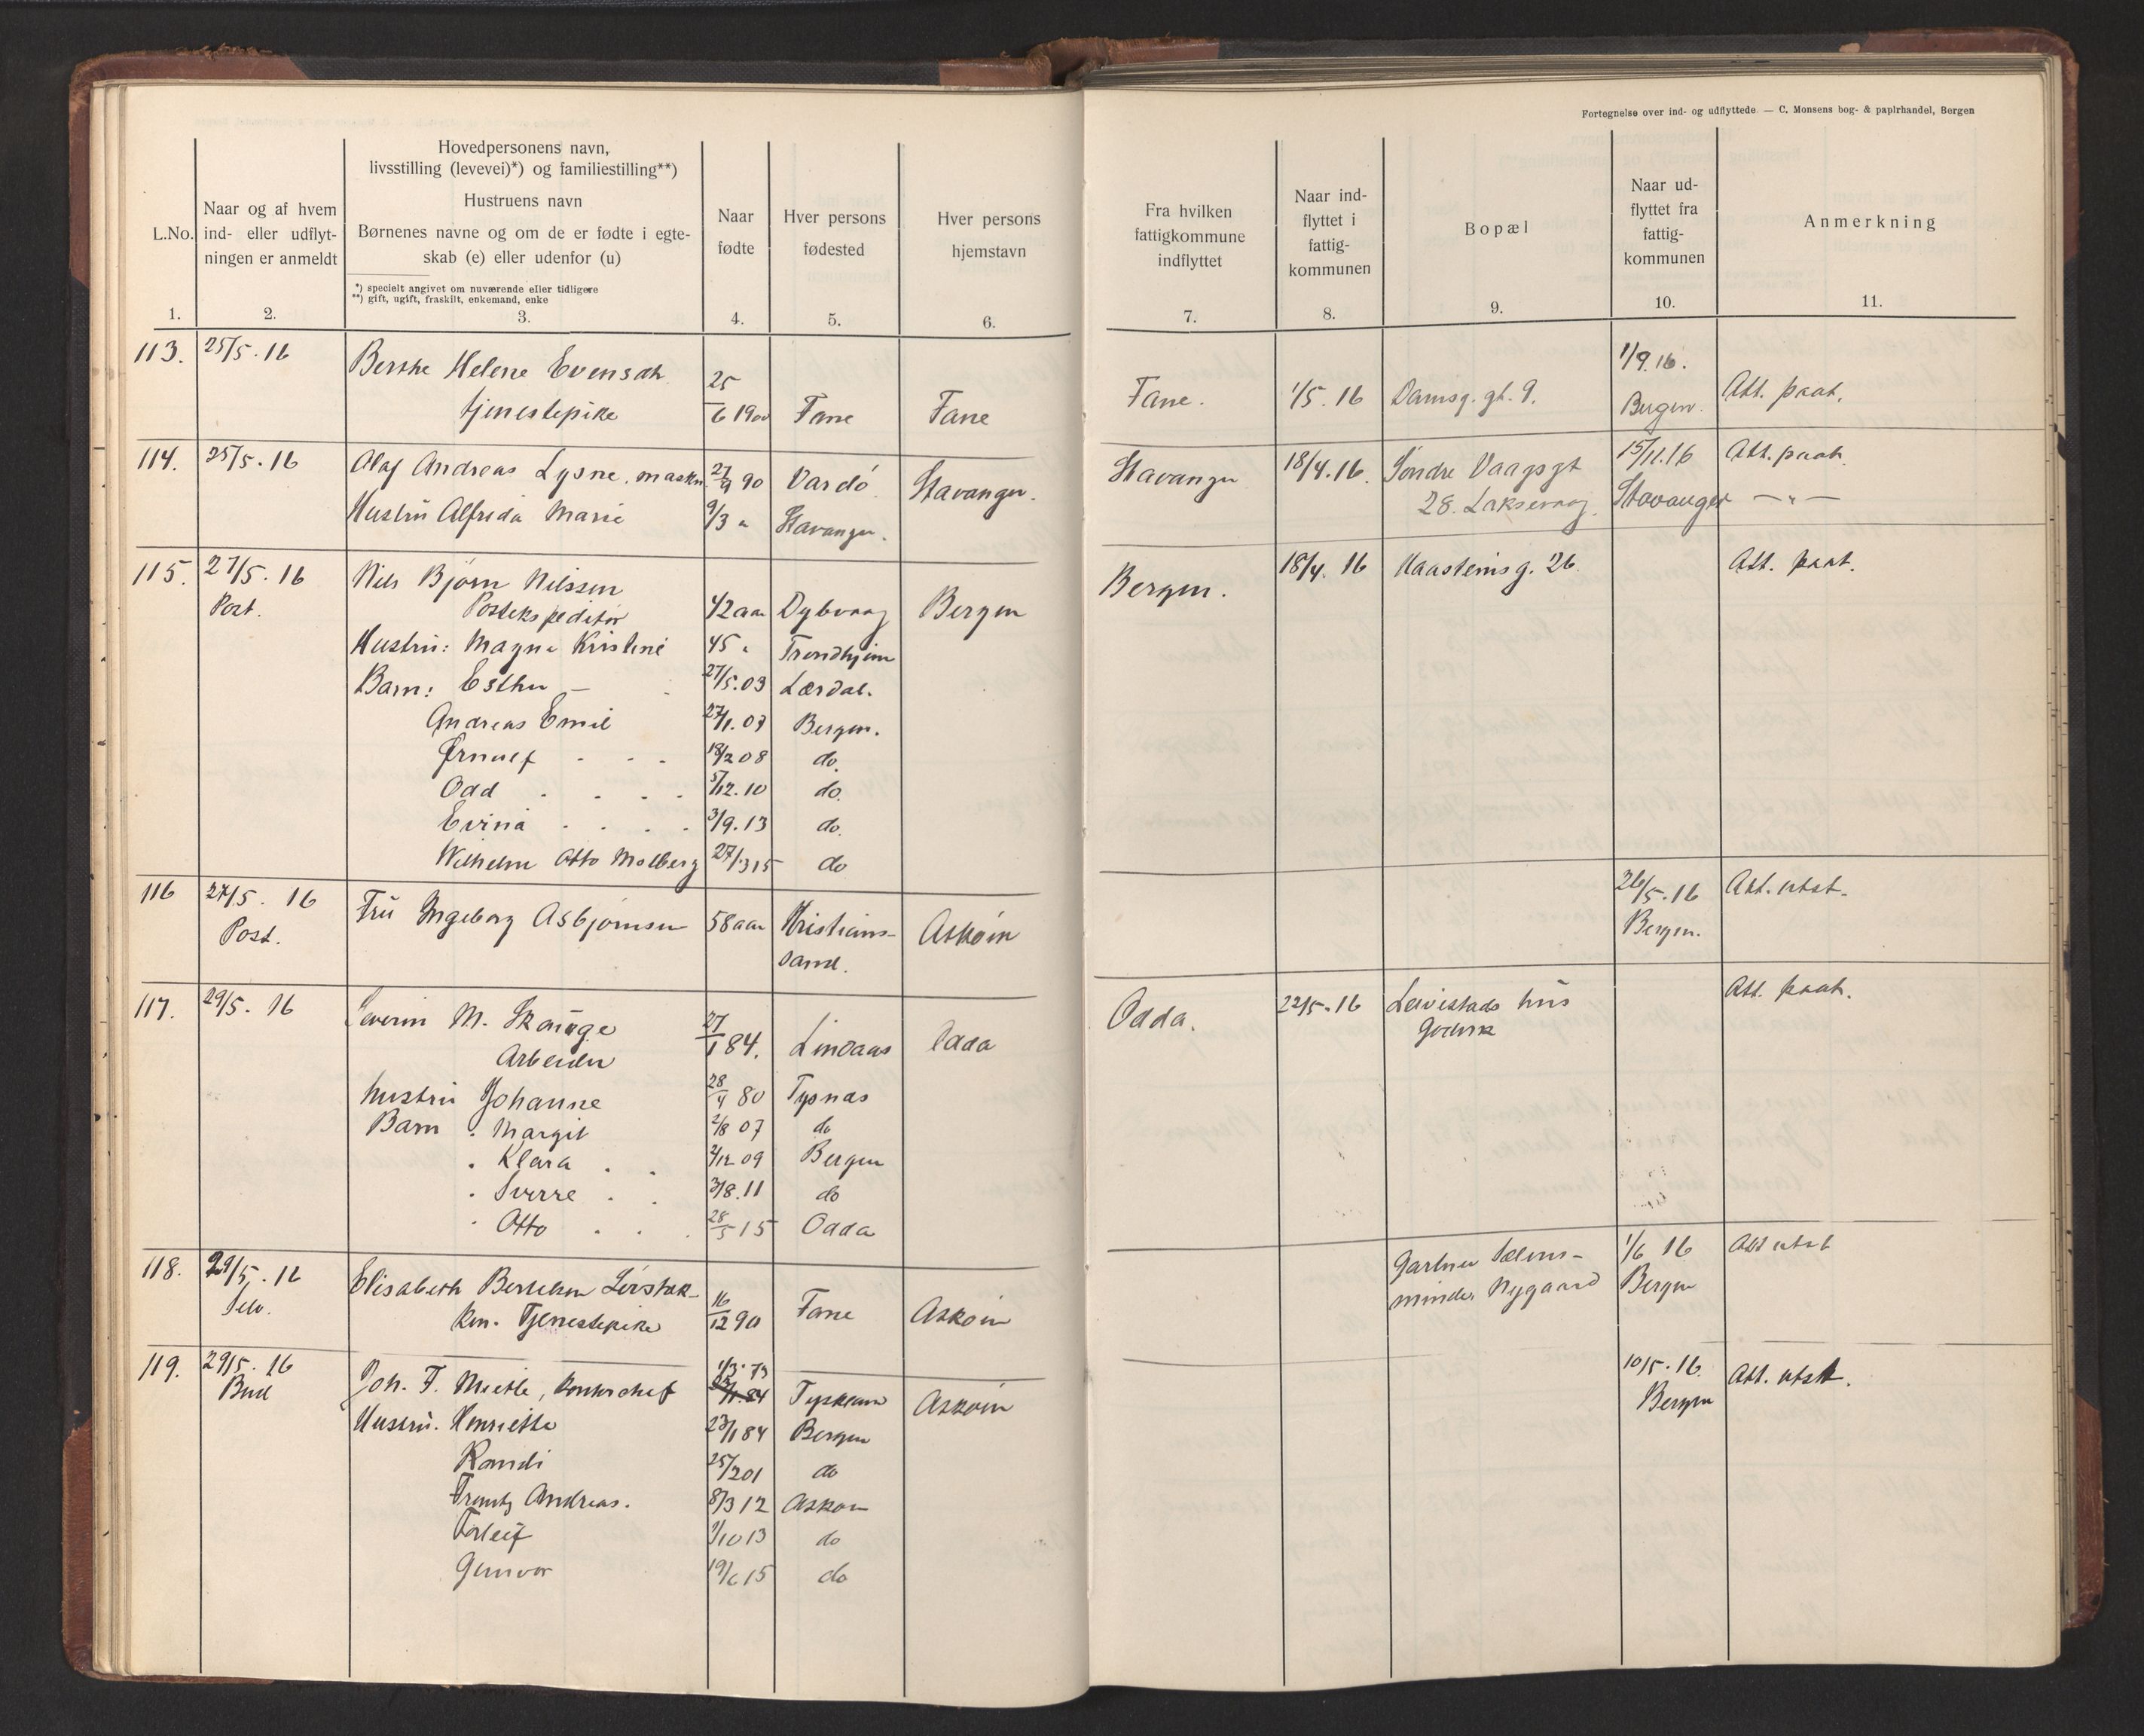 Fortegnelse over ind- og udflyttede — C. Monsens bog- & papirhandel, Bergen
L.No.
1.
Naar og af hvem
ind- eller udflyt-
ningen er anmeldt
2.
Hovedpersonens navn,
livsstilling (levevei)*) og familiestilling**)
Hustruens navn
Børnenes navne og om de er fødte i egte-
skab (e) eller udenfor (u)
*) specielt angivet om nuværende eller tidligere
**) gift, ugift, fraskilt, enkemand, enke
3.
Naar
fødte
4.
Hver persons
fødested
5.
Hver persons
hjemstavn
6.
Fra hvilken
fattigkommune
indflyttet
7.
Naar ind-
flyttet i
fattig-
kommunen
8.
Bopæl
9.
Naar ud-
flyttet fra
fattig-
kommunen
10.
Anmerkning
11.
113. 25/5.16 Berthe Helene 25 1/9.16.
tjenestepike 6 1900 Fane Fane Fane. 1/5.16 Damsg. gt. 9. Bergen. Att. paat.
114. 25/5.16 Olaf Andreas Lysne, mask. 27/9 90 Vardö Stavanger. Stavanger 18/4.16. Söndre Vaagsgt 15/11.16 Att. paat.
Hustru Alfrida Marie 9/3 " Stavanger. 28. Laksevaag. Stavanger — " —
115. 27/5.16 Nils Bjørn Nilssen Bergen. 18/4.16 Haasteinsg. 26. Att. paat.
Post. Postekspeditör 42 aar Dybvaag Bergen
Hustru: Magna Kristine 45 " Trondhjem
Barn: Esther — 27/5.03 Lærdal.
Andreas Emil 27/1.07 Bergen.
Ørnulf 18/2 08 do.
Odd 5/12.10 do.
Evina 3/9.13 do.
Wilhelm Otto Molberg 27/3 15 do
116 27/5.16 Fru Ingeborg Asbjørnsen 58 aar Kristians- Askøen 26/5.16 Att. utst.
Post. sand. Bergen.
117. 29/5.16 Severin M. Skauge 27 Odda. 22/5.16 Leivestads hus Att. paat.
Arbeider 1 84. Lindaas Odda Godvik
hustru Johanne 28/4 80 Tysnæs
Barn " Margit 2/8 07 do
" Klara 2/12 09 Bergen
" Sverre 3/8.11 do
" Otto 28/5 15 Odda
118. 29/5.16 Elisabeth Bertelsen 16 Gartner 1/6 16 Att utst
Selv. Tjenestepike 12 90 Fane Askøen minde, Nygaard Bergen
119. 29/5.16 Joh. F. Kontorchef 1/3.73 Tyskland Askøen 10/5.16. Att. utst.
Bud Hustru. Henriette 23/1 84 Bergen Bergen
Randi 25/2 01 do
Frantz Andreas. 8/3 12 Askøen
Torleif 9/10 13 do
Gunvor 19/6 15 do